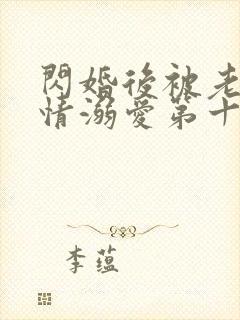 閃婚後被老
情溺愛第十
李蘊